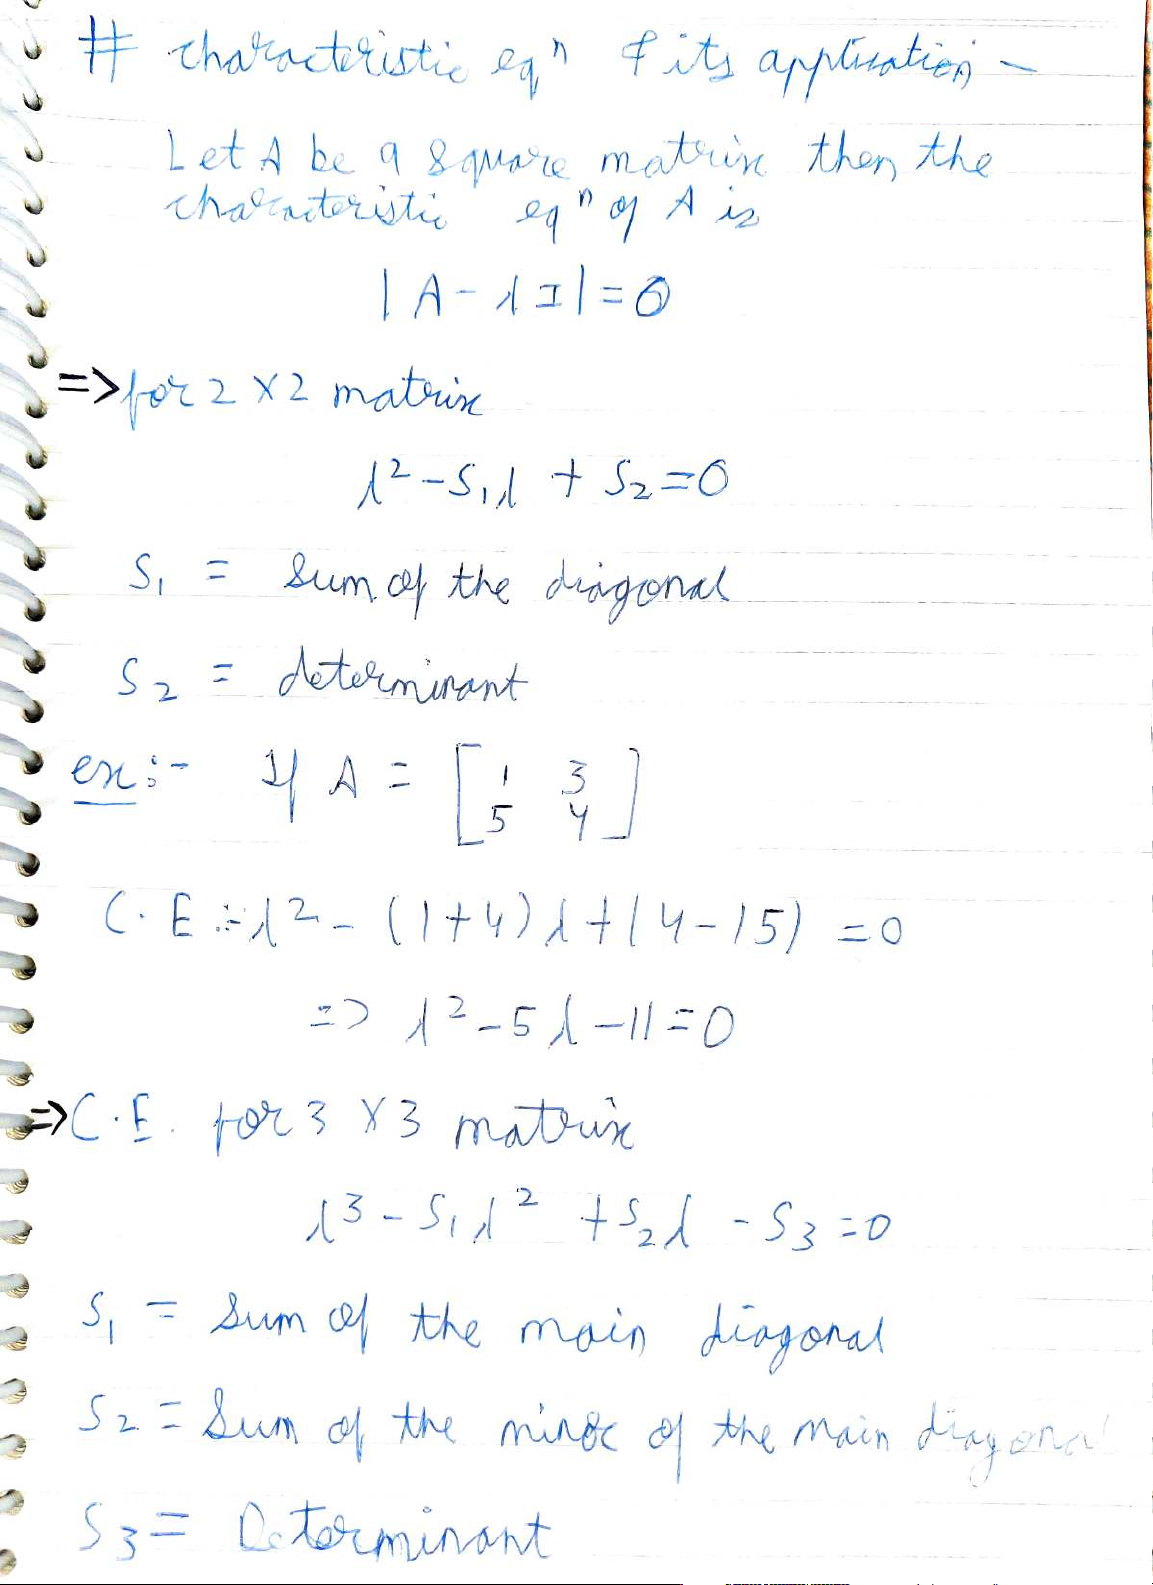 # characteristic eqⁿ & its application -
Let A be a square matrix then the
characteristic eqⁿ of A is
| A - λI | = 0
=> for 2 × 2 matrix
λ² - S₁λ + S₂ = 0
S₁ = Sum of the diagonal
S₂ = determinant
ex:- If A = [ 1 3
5 4 ]
C.E :- λ² - (1+4)λ + (4-15) = 0
=> λ² - 5λ - 11 = 0
=> C.E. for 3 × 3 matrix
λ³ - S₁λ² + S₂λ - S₃ = 0
S₁ = Sum of the main diagonal
S₂ = Sum of the minor of the main diagonal
S₃ = Determinant